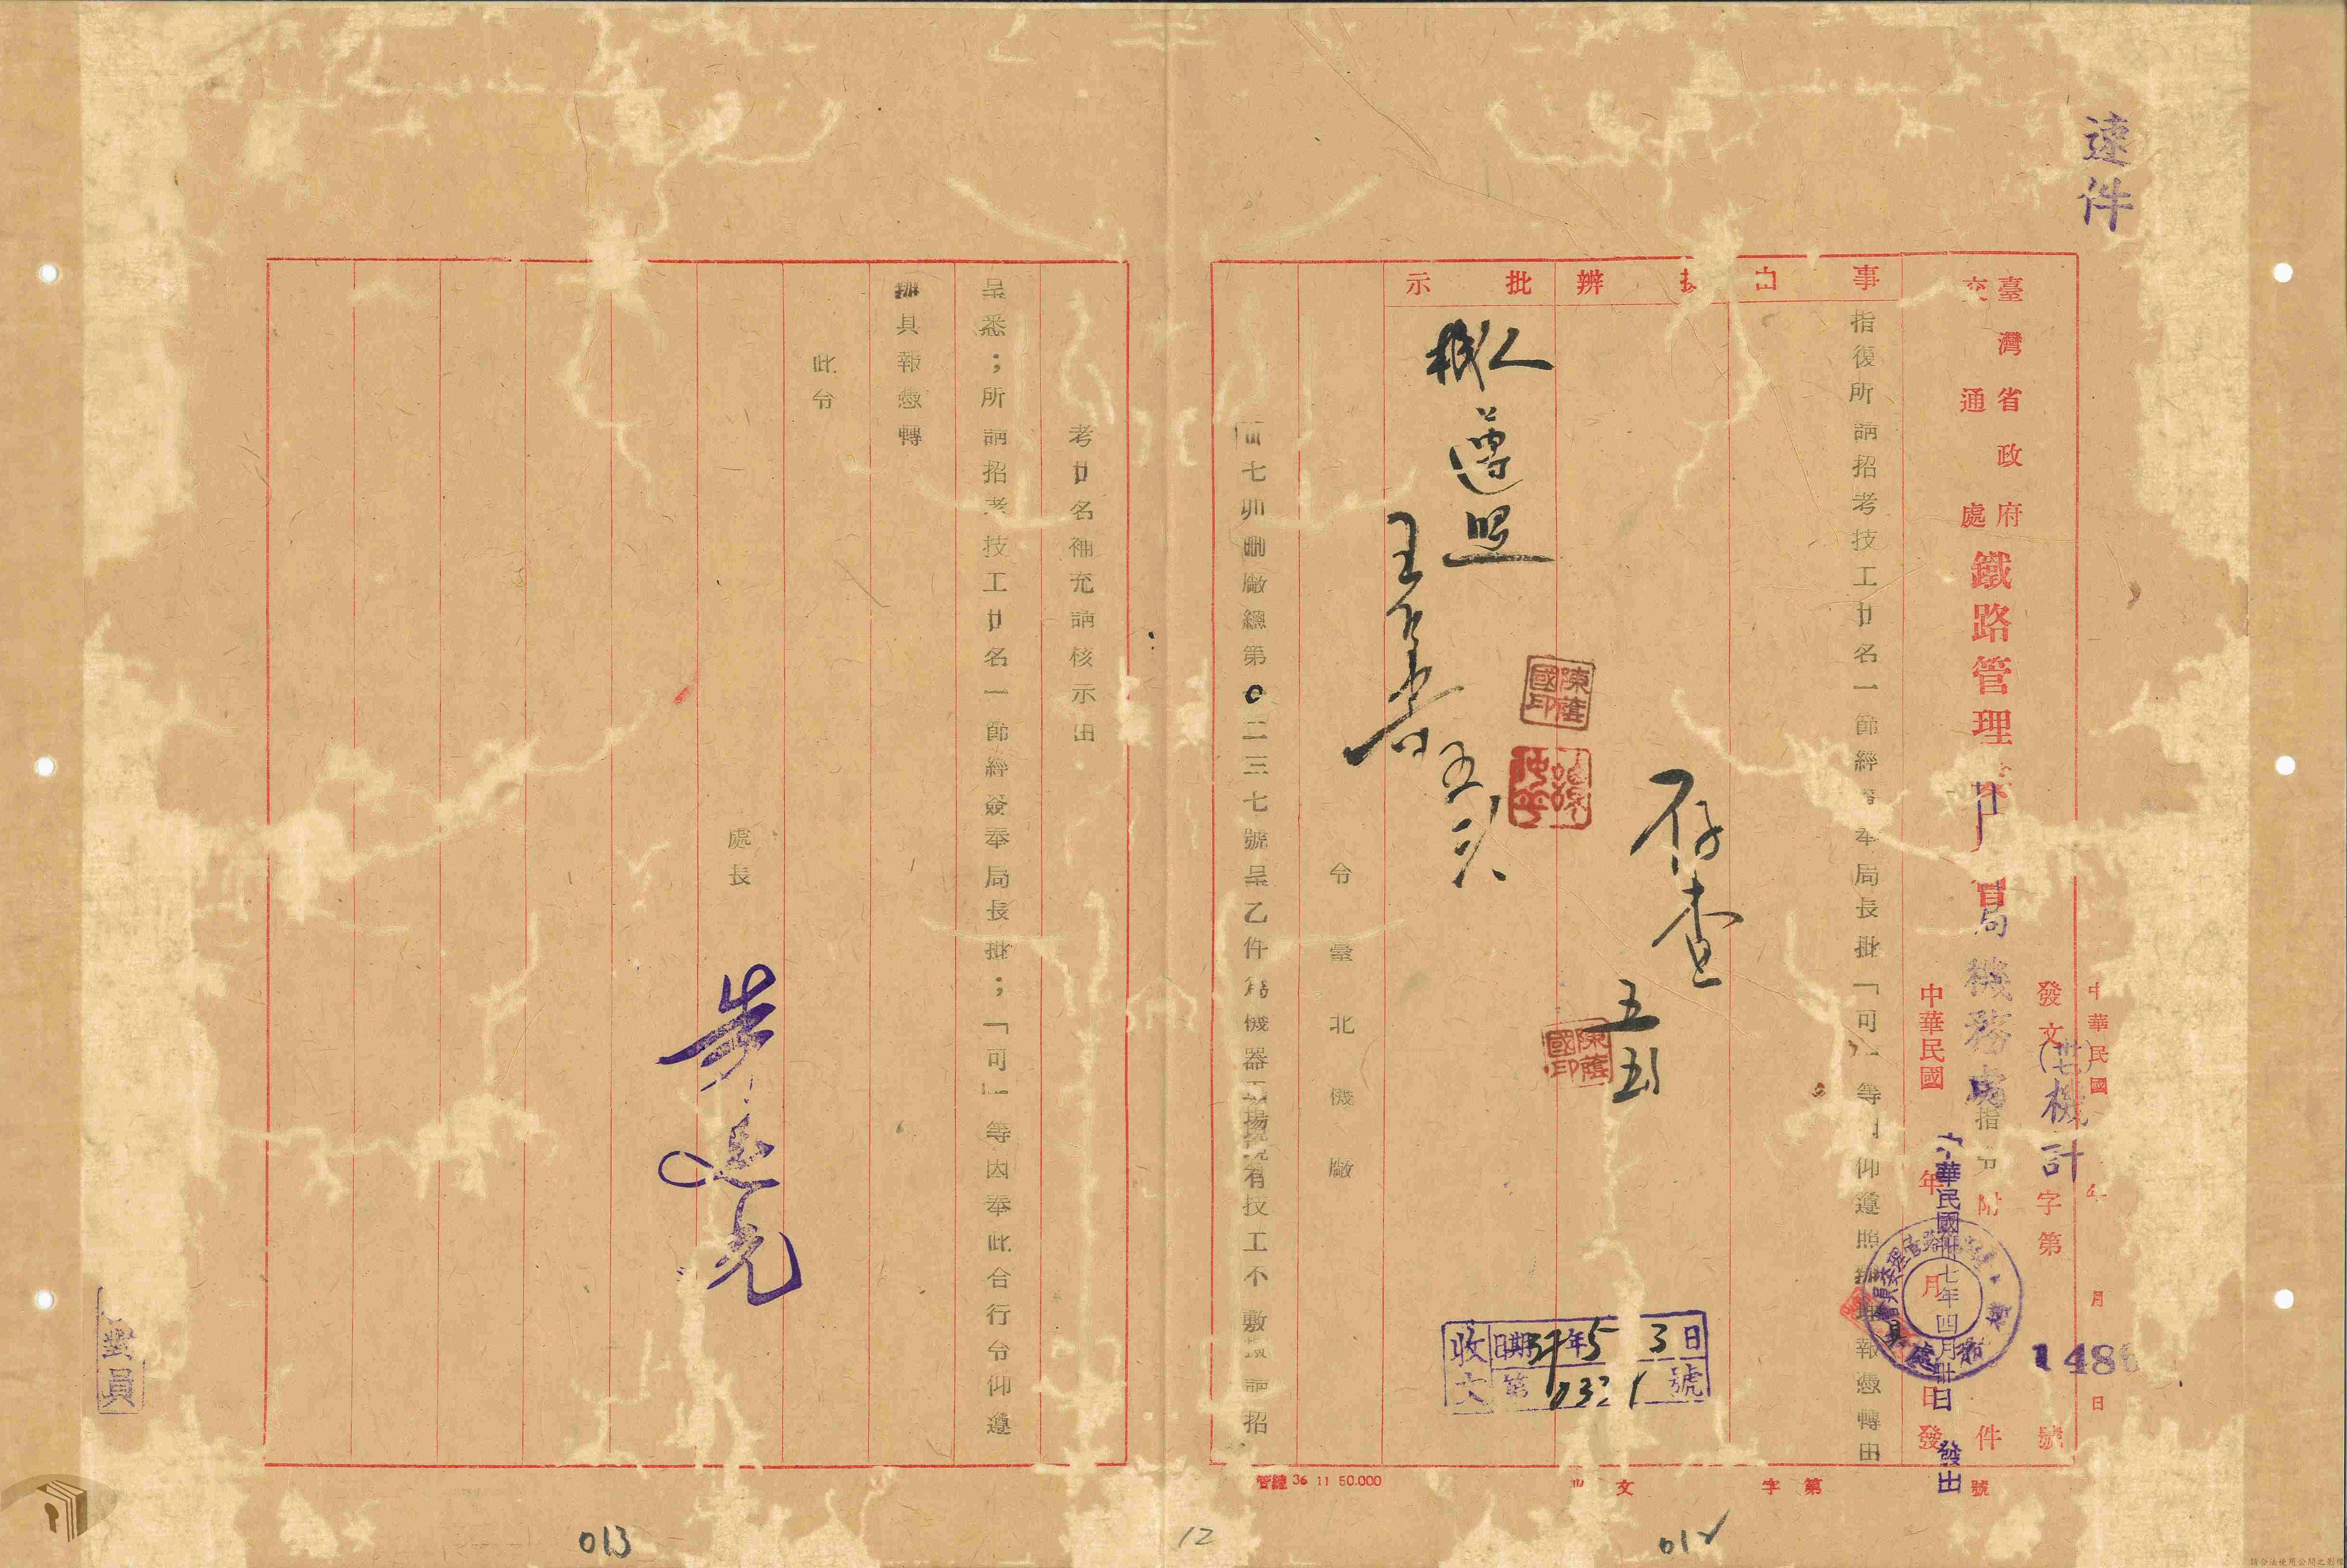 速件
中華民國 年 月 日
發文(卅七)機計字第1486號
臺灣省政府
交通處
鐵路管理
局機務處
指令
附件
中華民國 年 月 日發
中華民國卅七年四月卅日發出
事由
擬辦
批示
指復所請招考技工廿名一節經簽奉局長批「可」等因仰遵照辦理報憑轉由
存查
五 五
陳蔭國印
陳蔭國印
機人
遵照
收文 日期 37年5 3日
第 號
令臺北機廠
卅七卯 廠總第0二三七號呈乙件為機器工場現有技工不敷 請招
考廿名補充請核示由
呈悉;所請招考技工廿名一節經簽奉局長批;「可」等因奉此合行令仰遵
辦具報憑轉
此令
處長
管總 36 11 50.000
收文 字第 號
對員
013
12
012